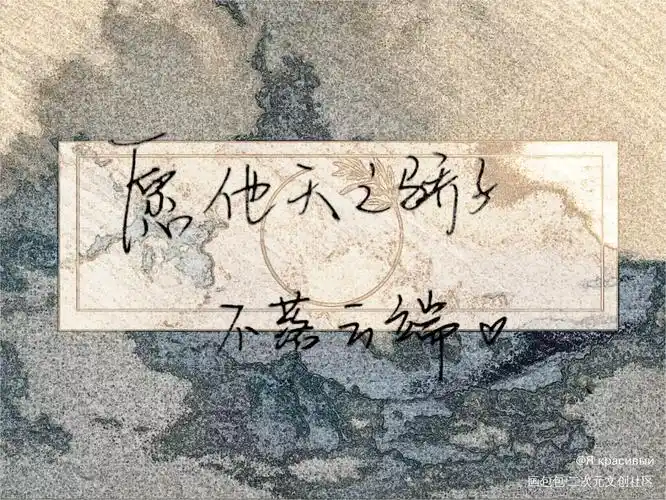 愿他天之骄子
不落云端♡
@Я красивый
画包包·二次元文创社区